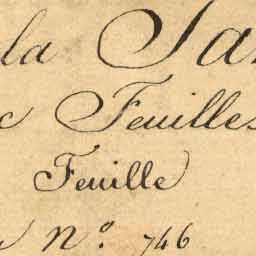 la
Feuilles
Feuille
Nº. 746